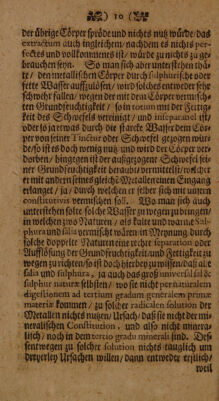 ) 10 (
der übrige Cörper spröde und nichts nuß würde/ das
extractum auch ingleichem/ nachdem es nichts per-
fectes und vollkommenes ist/ würde zu nichts zu ge-
brauchen seyn. So aber einer sich unterstehen thä-
te/ den metallischen Cörper durch sulphurische oder
fette Wasser auffzulösen/ wird solches entweder sehr
schwehr fallen/ wegen der edlen Cörper vermisch-
ten Grundfeuchtigkeit/ so in totum mit der Fettig-
keit des Schwefels vereiniget/ und inseparabel ist/
oder so ja etwas durch die starcke Wasser dem Cör-
per von seiner Tinctur oder Schwefel gezogen wür-
de/ so ist es doch wenig nutz/ und wird der Cörper ver-
dorben/ hingegen ist der außgezogene Schwefel sei-
ner Grundfeuchtigkeit beraubt/ vermittelst welcher
er mit andern seines gleiche Metallen einen Eingang
erlanget/ ja/ durch welchen er selber sich mit seinen
constitutivis vermischen soll. Wo man sich auch
unterstehen solte solche Wasser zuwegen zubringen/
in welchen zwo Naturen/ als kalte und warme Sul-
phura und salia vermischt wären in Meynung durch
solche doppelte Naturen eine rechte separation oder
Aufflösung der Grundfeuchtigkeit und Fettigkeit zu
wegen zu richten/ so ist doch hierbey zu wissen/ daß alle
salia und sulphura, ja auch das groß universal sal &
sulphur naturæ selbsten/ wo sie nicht per naturalem
digestionem ad tertium gradum generalem primæ
materiæ kommen/ zu solcher radicalen solution der
Metallen nichts nutzen/ Ursach/ daß sie nicht der mi-
neralischen Constitution, und also nicht minera-
lisch/ noch in dem tertio gradu mineralis sind. Des-
sentwegen zu solcher solution nichts tauglich um
dreyerley Ursachen willen/ dann entweder erstlich/
weil